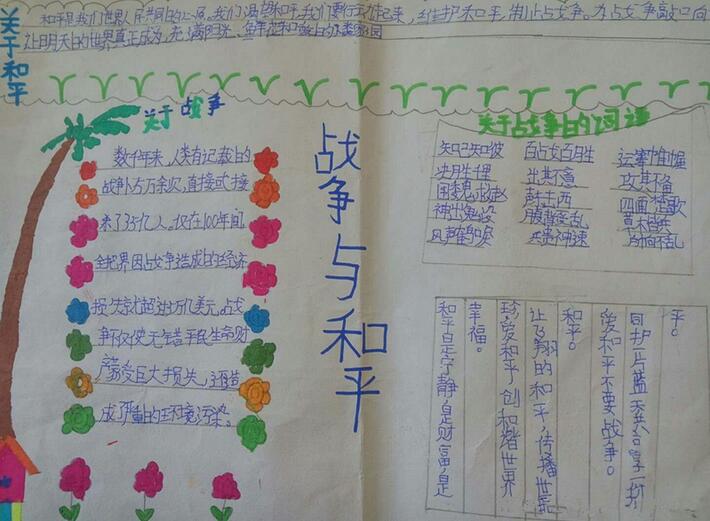 关于和平
和平是我们世界人民共同的心愿,我们渴望和平,我们要行动起来,维护和平,制止战争。为
让明天的世界真正成为,充满阳光、鲜花和
关于战争
数千年来,人类有记载的
战争
来了35亿人,仅在100年间
全世界因战争造成的经济
损失就超过
争不仅使无辜平民生命财
产蒙受巨大损失,还造
成了严重的环境污染。
战争与和平
关于战争的词语
知己知彼 百战百胜 运筹帷幄
决胜千里 出其不意 攻其不备
围魏求赵 声东击西 四面楚歌
神出鬼没 腹背受乱 草木皆兵
风声鹤唳 兵贵神速
平。
同护正蓝天共享一阶
爱和平不要战争。
和平。
让飞翔的和平,传播世示
珍爱和平,创和谐世界
幸福。
和平是宁静,是财富,是